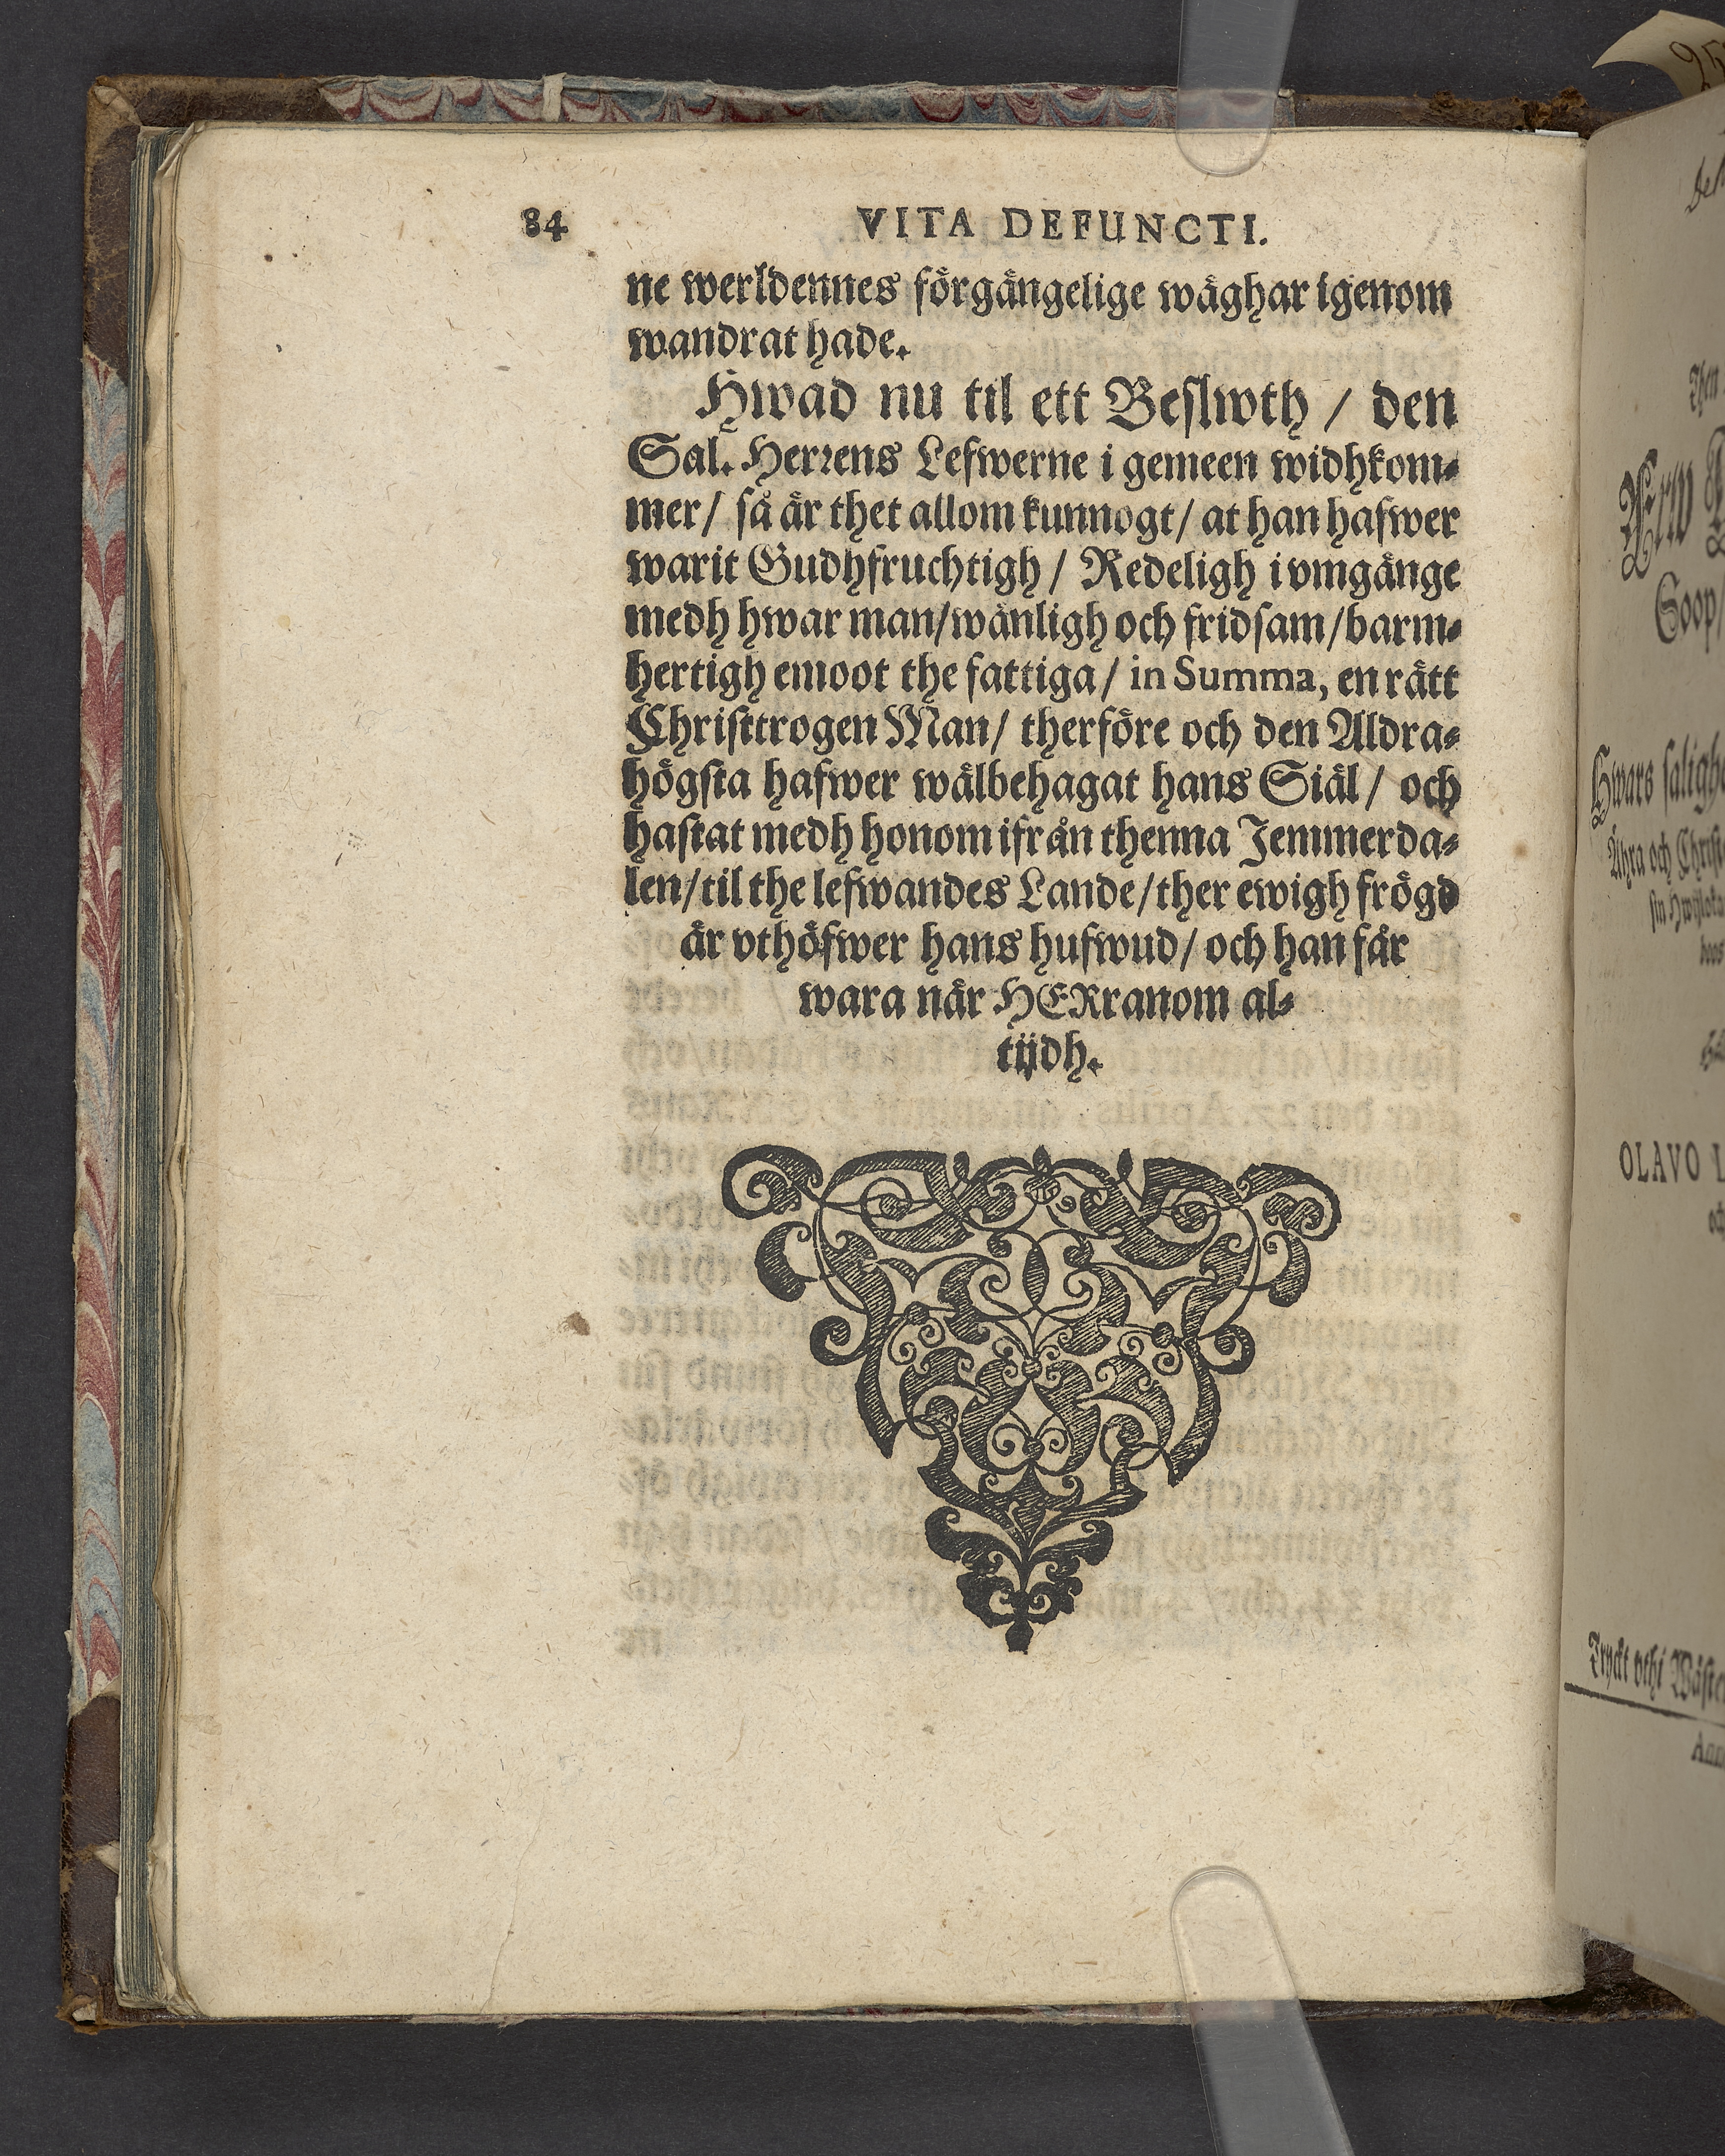 84 VITA DEFUNCTI.
ne werldennes förgängelige wäghar igenom
wandrat hade.
Hwad nu til ett Beslwth / den
Sal. Herrens Lefwerne i gemeen widhkom-
mer / så är thet allom kunnogt / at han hafwer
warit Gudhfruchtigh / Redeligh i vmgänge
medh hwar man / wänligh och fridsam / barm-
hertigh emoot the fattiga / in Summa, en rätt
Christtrogen Man / therföre och den Aldra-
högsta hafwer wälbehagat hans Siäl / och
hastat medh honom ifrån thenna Jemmerda-
len / til the lefwandes Lande / ther ewigh frögd
är vthöfwer hans hufwud / och han får
wara när HERranom al-
tijdh.
Soop/
Hwars saligh
Ähra och Christ
OLAVO L
Tryckt vthi Wäste